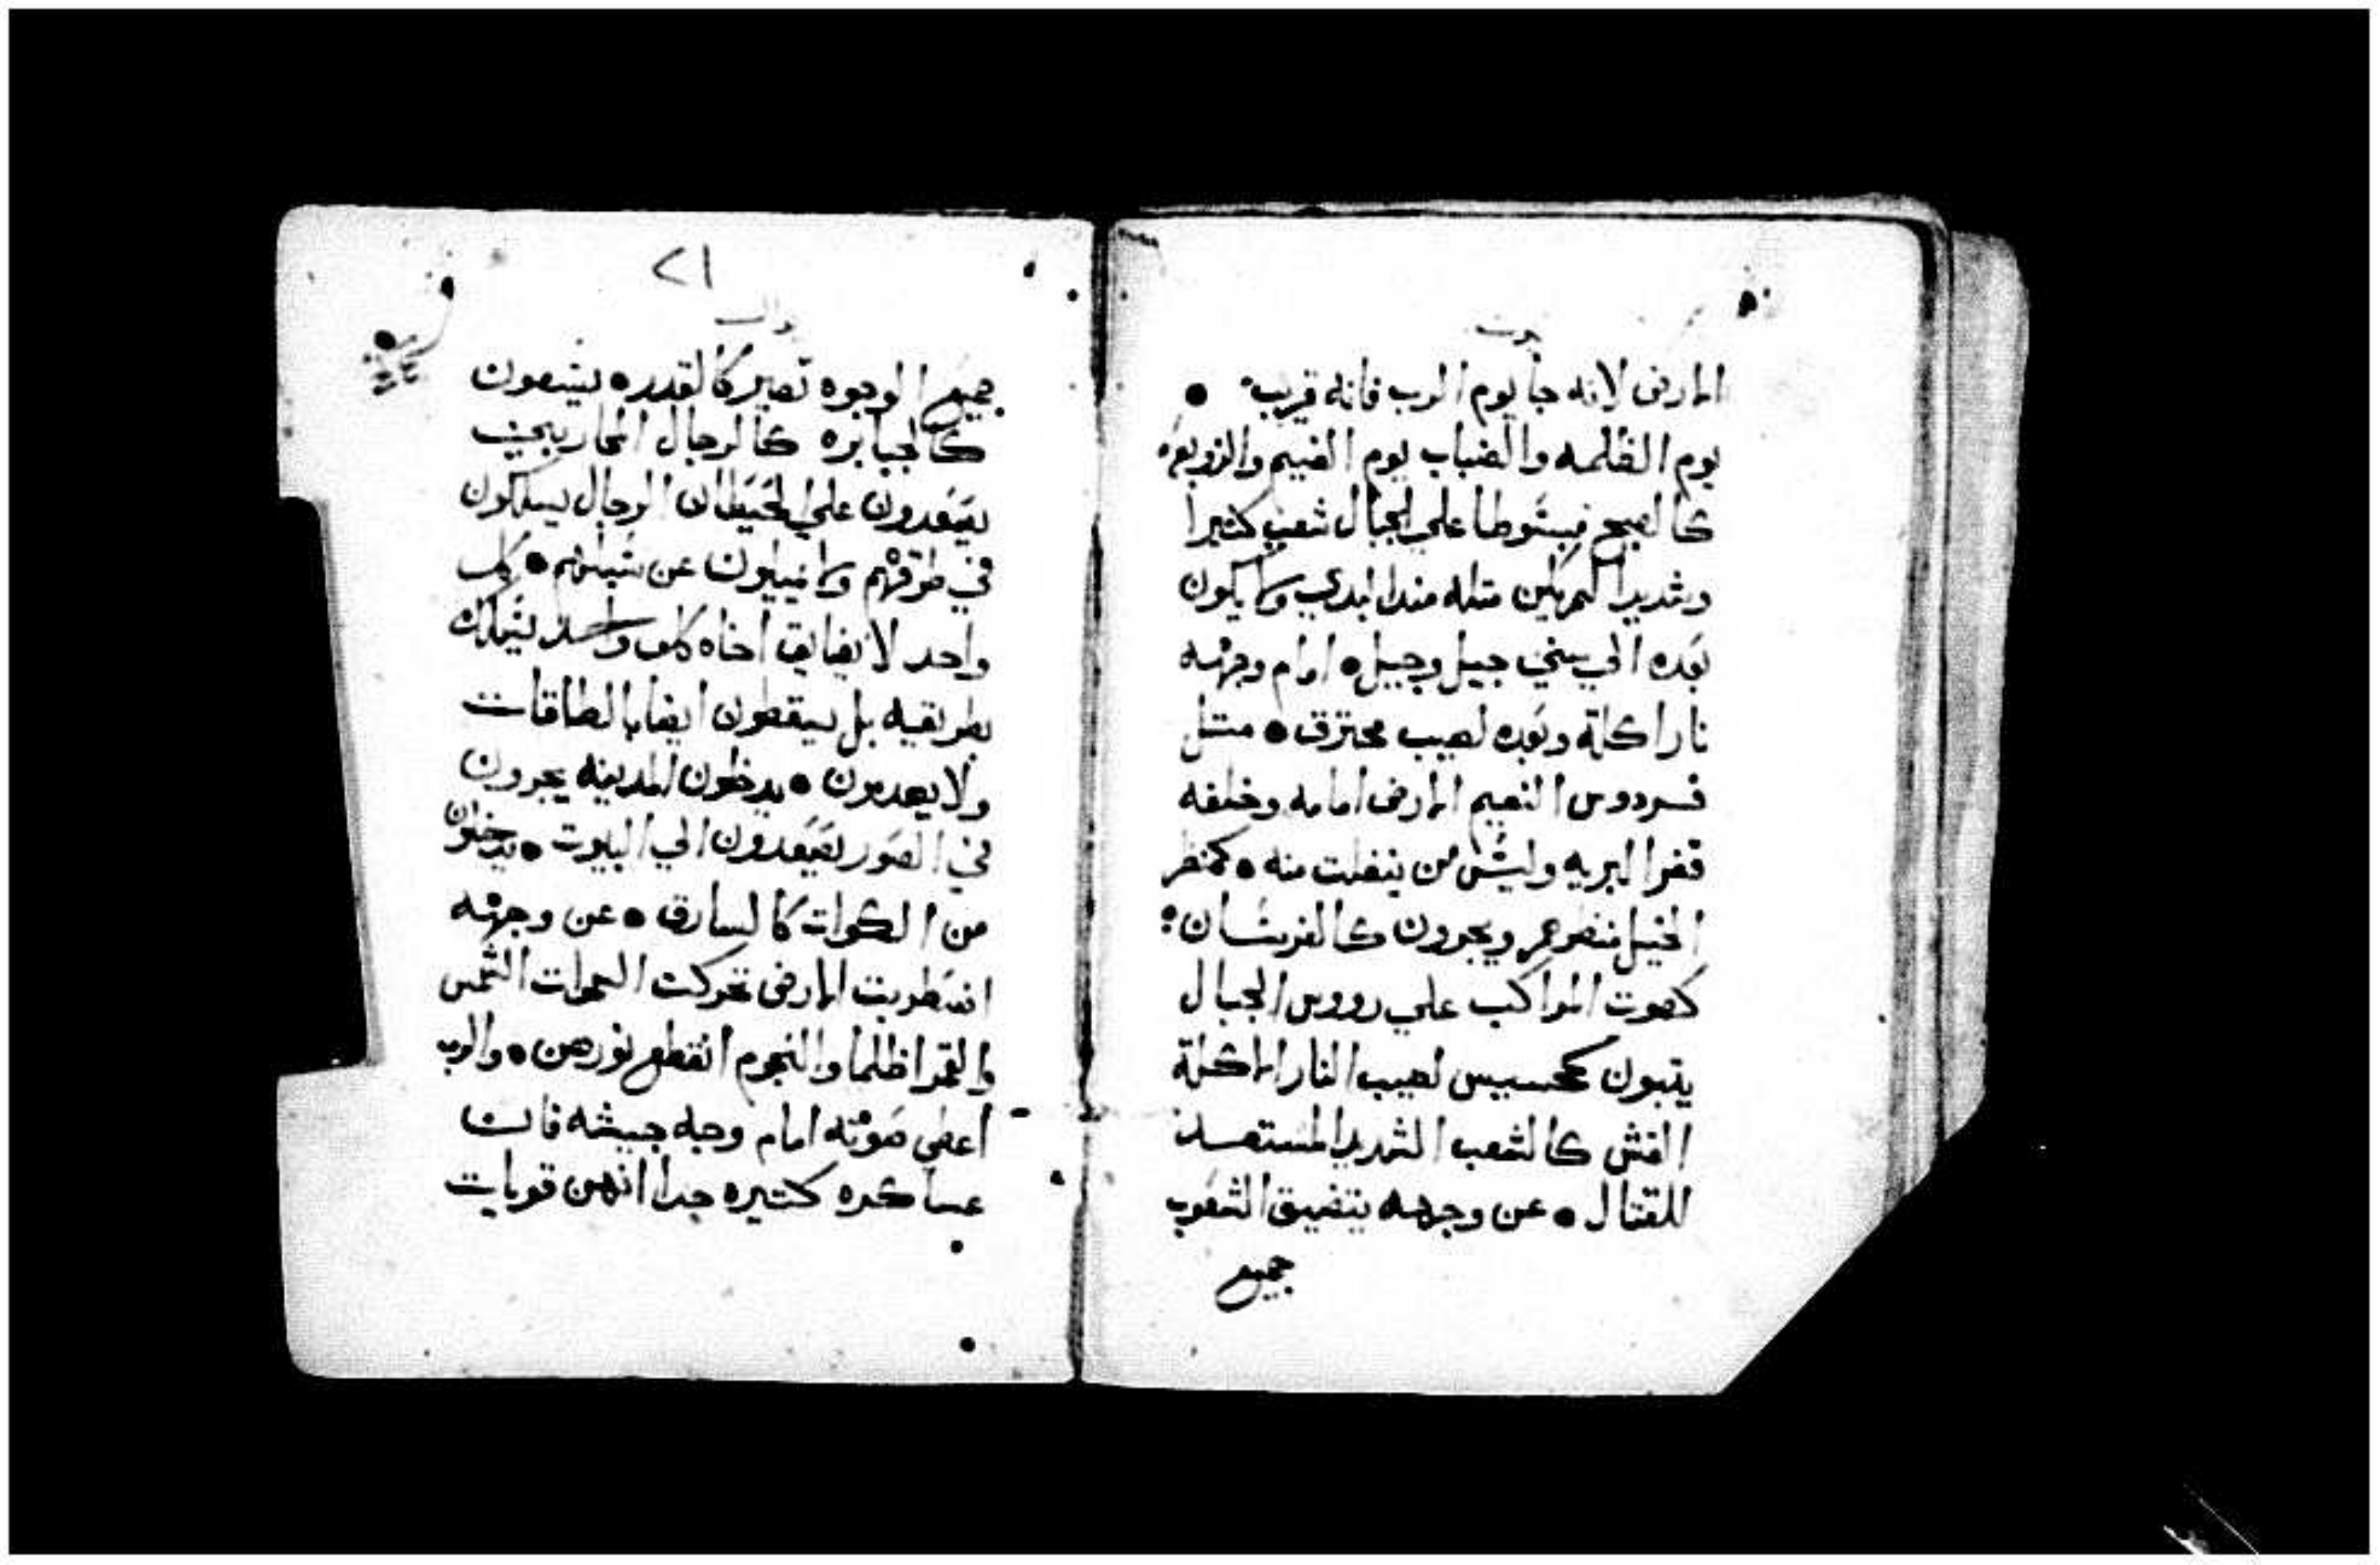 الارض لانه جا يوم الرب فانه قريب •
يوم الظلمه والضباب يوم الغيم والزوبعه
كالصبح مبسوطا علي الجبال شعب كثيرا
وشديدا لم يكن مثله منذ البدي ولا يكون
بعده الي سني جيل وجيل • امام وجهه
نارا كلة وبعده لهيب محترق • مثل
فردوس النعيم الارض امامه وخلفه
قفرا البريه وليس من ينفلت منه • كمنظر
الخيل منظرهم ويجرون كالفرسان :
كصوت المراكب علي رووس الجبال
يتبون كحسيس لهيب النار الاكلة
القش كالشعب الشديد المستعد
للقتال • عن وجهه يتضيق الشعوب
جميع
٢١
جميع الوجوه تصير كالقدره يسعون
كالجبابره كالرجال المحاربين
يصعدون علي الحيطان الرجال يسلكون
في طرقهم ولا يميلون عن سبلهم • كل
واحد لا يضايق اخاه كل واحد يسلك
بطريقيه بل يسقطون ايضا بالطاقات
ولا يعدمون • يدخلون المدينه يجرون
في الصور يصعدون الي البيوت • يدخلون
من الكوات كالسارق • عن وجهه
اضطربت الارض تحركت السموات الشمس
والقمر اظلما والنجوم انقطع نورهن • والرب
اعطي صوته امام وجه جيشه فان
عساكره كتيره جدا انهن قويات